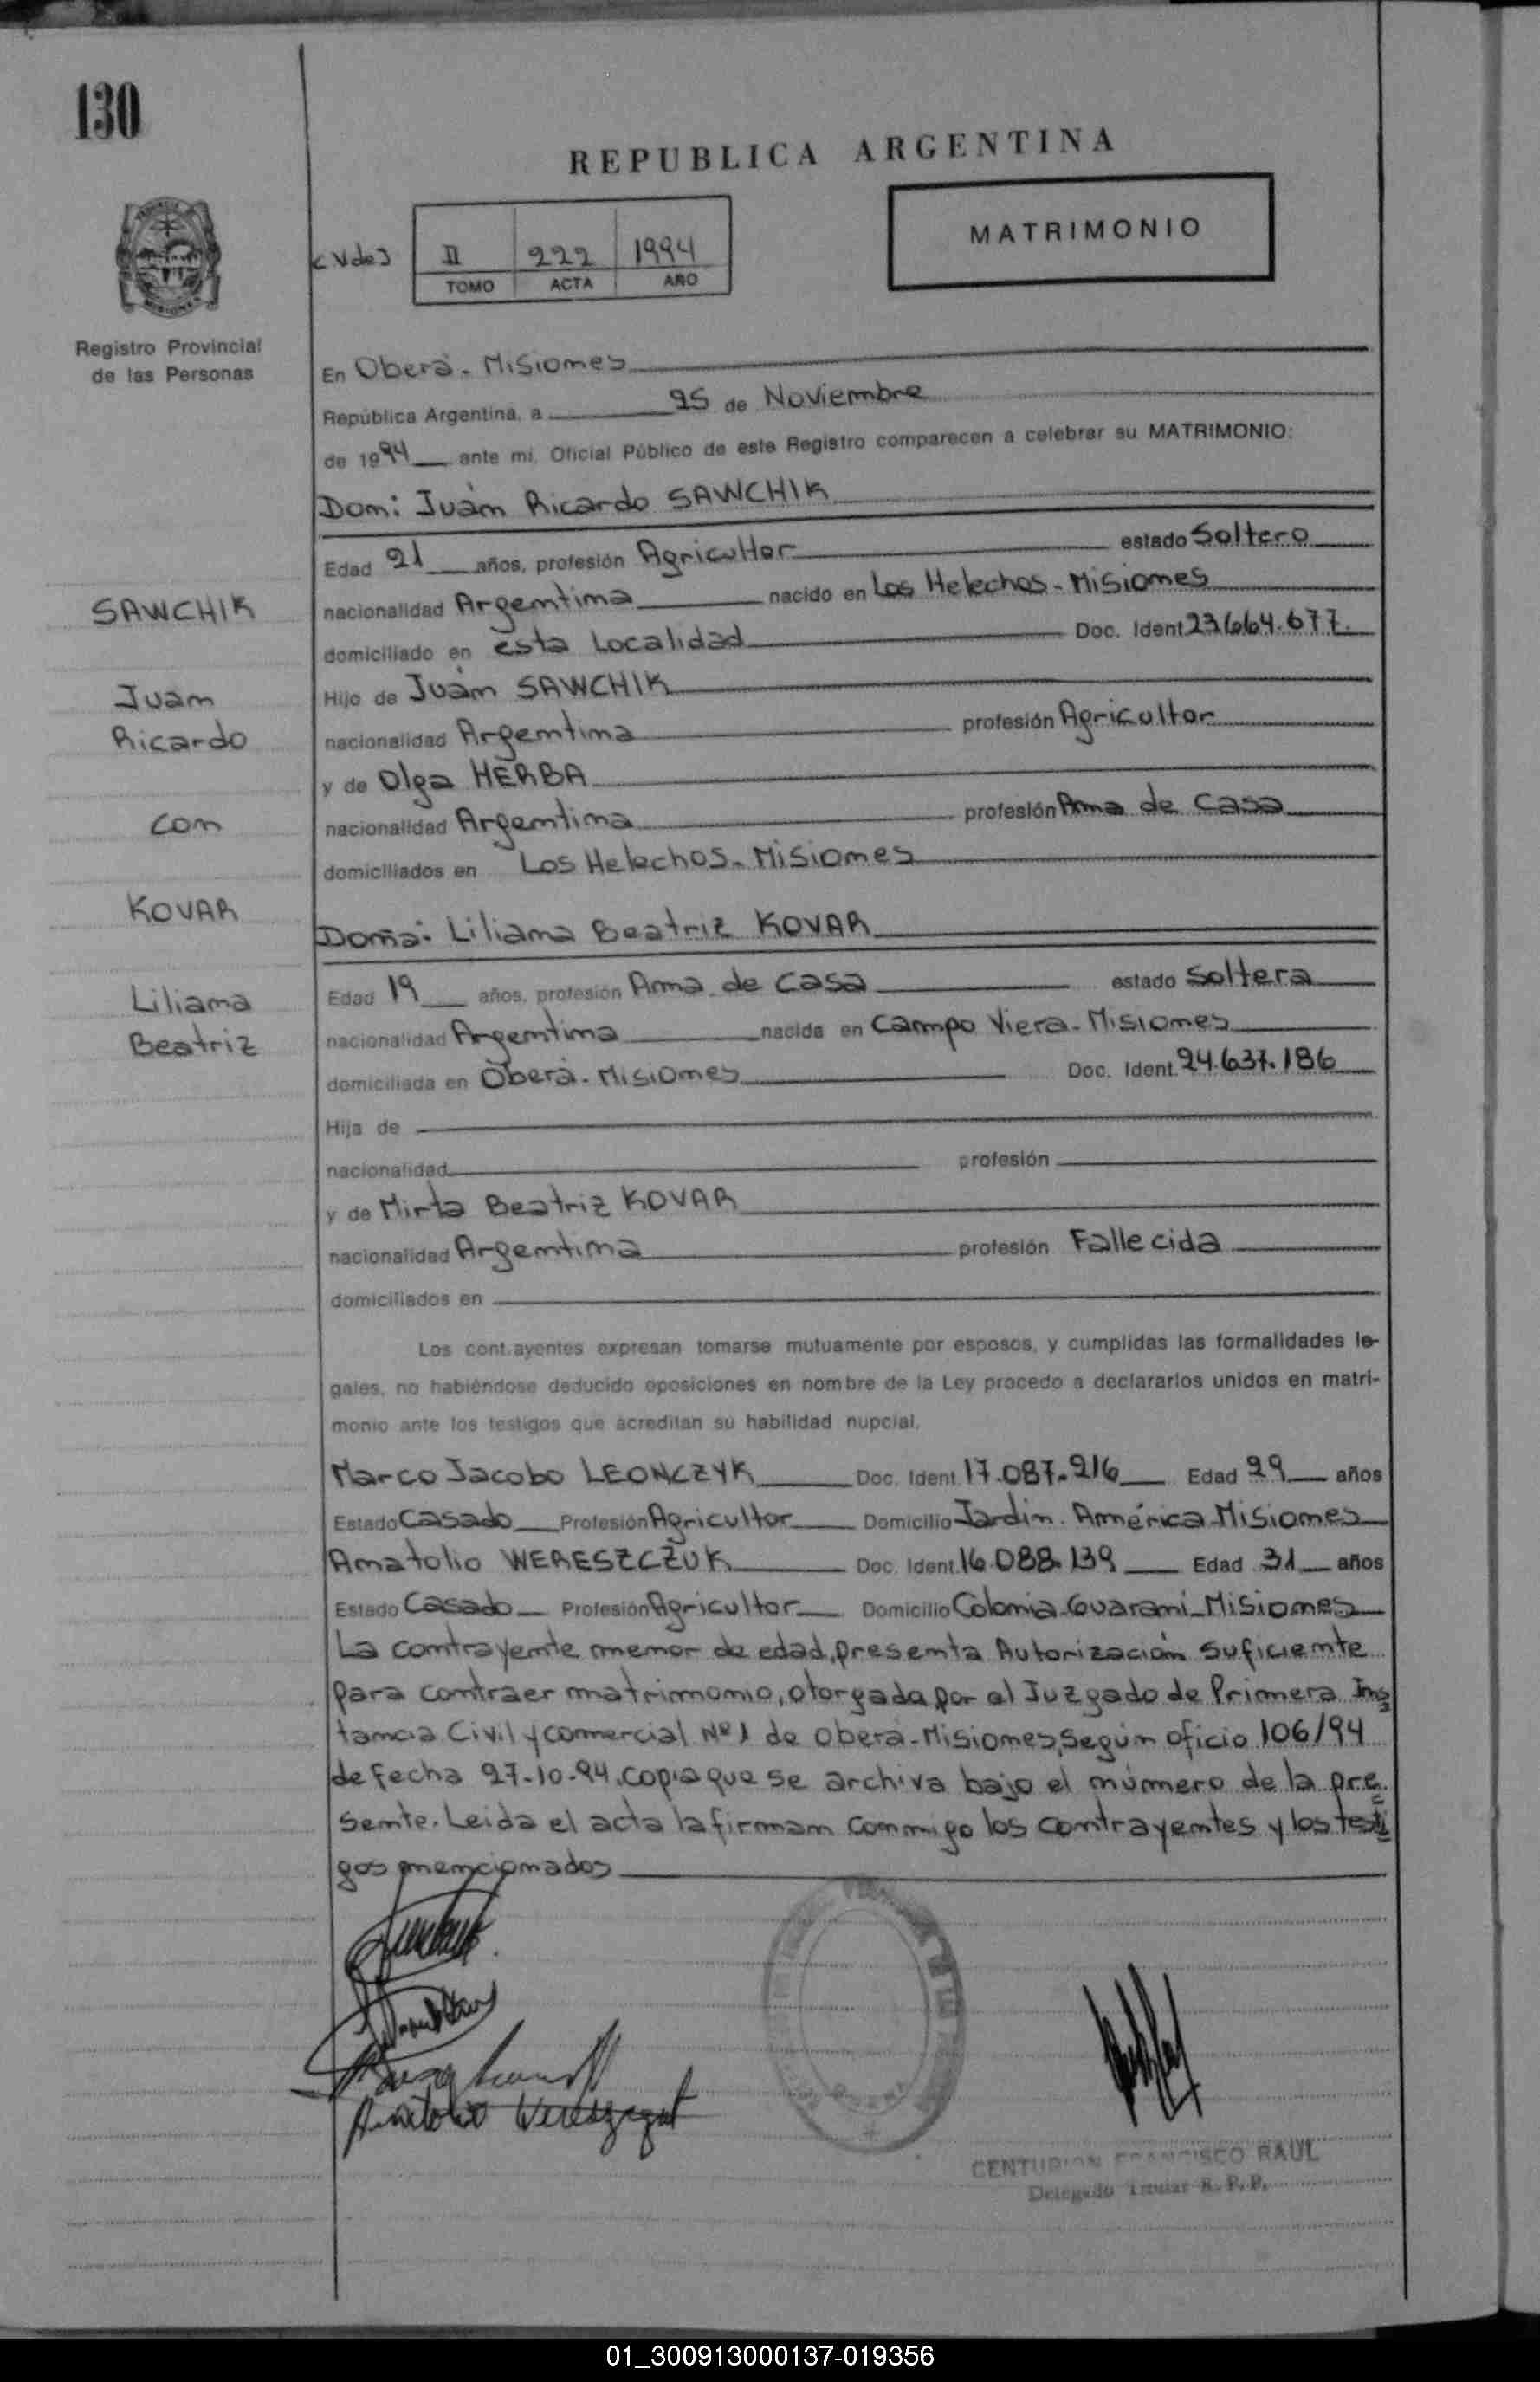 130
REPUBLICA ARGENTINA
MATRIMONIO
II 222 1994
TOMO ACTA AÑO
Registro Provincial
de las Personas
En Oberá - Misiones
República Argentina, a 25 de Noviembre
de 1994 ante mí, Oficial Público de este Registro comparecen a celebrar su MATRIMONIO:
Don: Juan Ricardo SAWCHIK
Edad 21 años, profesión Agricultor estado Soltero
nacionalidad Argentina nacido en Los Helechos - Misiones
domiciliado en esta Localidad Doc. Ident 23.664.677.
Hijo de Juan SAWCHIK
nacionalidad Argentina profesión Agricultor
y de Olga HERBA
nacionalidad Argentina profesión Ama de Casa
domiciliados en Los Helechos - Misiones
SAWCHIK
Juan
Ricardo
con
KOVAR
Liliana
Beatriz
Doña: Liliana Beatriz KOVAR
Edad 19 años, profesión Ama de Casa estado Soltera
nacionalidad Argentina nacida en Campo Viera - Misiones
domiciliada en Oberá - Misiones Doc. Ident. 24.637.186
Hija de
nacionalidad profesión
y de Mirta Beatriz KOVAR
nacionalidad Argentina profesión Fallecida
domiciliados en
Los contrayentes expresan tomarse mutuamente por esposos, y cumplidas las formalidades le-
gales, no habiéndose deducido oposiciones en nombre de la Ley procedo a declararlos unidos en matri-
monio ante los testigos que acreditan su habilidad nupcial.
Marco Jacobo LEONCZYK Doc. Ident. 17.087.216 Edad 29 años
Estado Casado Profesión Agricultor Domicilio Jardín América Misiones
Anatolio WERESZCZUK Doc. Ident. 16.088.139 Edad 31 años
Estado Casado Profesión Agricultor Domicilio Colonia Guaraní - Misiones
La contrayente menor de edad, presenta Autorización Suficiente
para contraer matrimonio, otorgada por el Juzgado de Primera Ins
tancia Civil y Comercial Nº 1 de Oberá - Misiones, Según oficio 106/94
de fecha 27-10-94. Copia que se archiva bajo el número de la pre
sente. Leida el acta la firman conmigo los contrayentes y los testi
gos mencionados
Anatolio
CENTURION FRANCISCO RAUL
Delegado Titular R. P. P.
01_300913000137-019356